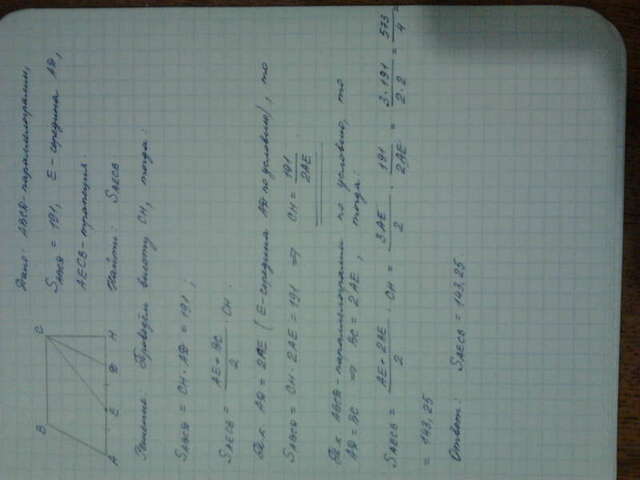 Дано: ABCD - параллелограмм,
S ABCD = 191, E - середина AD,
AECB - трапеция.
Найти: S AECB
B C
A E D H
Решение: Проведём высоту CH, тогда:
S ABCD = CH · AD = 191 ;
S AECB = (AE + BC)/2 · CH.
Т.к AD = 2AE ( E - середина AD по условию ) , то
S ABCD = CH · 2AE = 191 ⇒ CH = 191/2AE
Т.к ABCD - параллелограмм по условию, то
AD = BC ⇒ BC = 2AE , тогда:
S AECB = (AE + 2AE)/2 · CH = 3AE/2 · 191/2AE = 3·191/2·2 = 573/4 =
= 143,25
Ответ: S AECB = 143,25